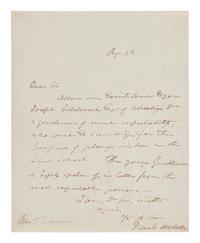 Dear Sir
Allow me to introduce to you
Joseph Caldwell Esq. of Wheeling Va
a gentleman of much respectability,
who comes to Cambridge for the
purpose of placing his son in the
Law School. The young Gentleman
is highly spoken of in letters from the
most respectable persons —
I am, dear sir, with
regard,
Yr
Danl Webster